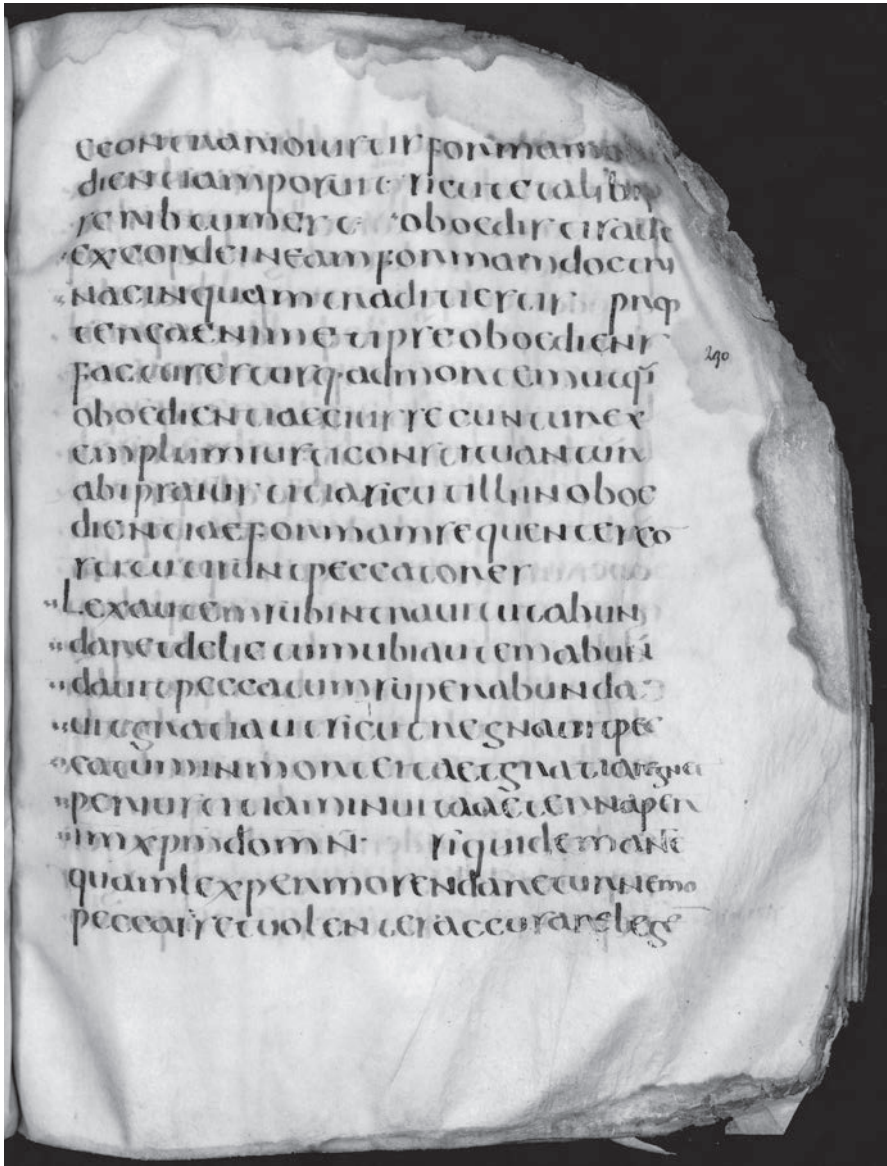 econtrarioiustis formamobo
dientiamposuit sicutetalibi
scribtumest oboedistisaute
excordeineamformamdoctri
naeinquamtraditiestis prop
tereaenimetipseoboediens
factusestusq·admortemutqui
oboedientiaeeiussecunturex
emplumiusticonstituantur
abipsaiustitiasicutilliinoboe
dientiaeformamsequentesco
stitutisuntpeccatores
Lexautemsubintrauitutabun
daretdelictumubiautemabun
dauitpeccatumsuperabunda
uitgratiautsicutregnauitpec
catuminmortemitaetgratiaregnet
periustitiaminuitaaeternaper
ihmxpmdomn· siquidemante
quamlexpermosendareturnemo
peccassetuolenteraccusarelege
290